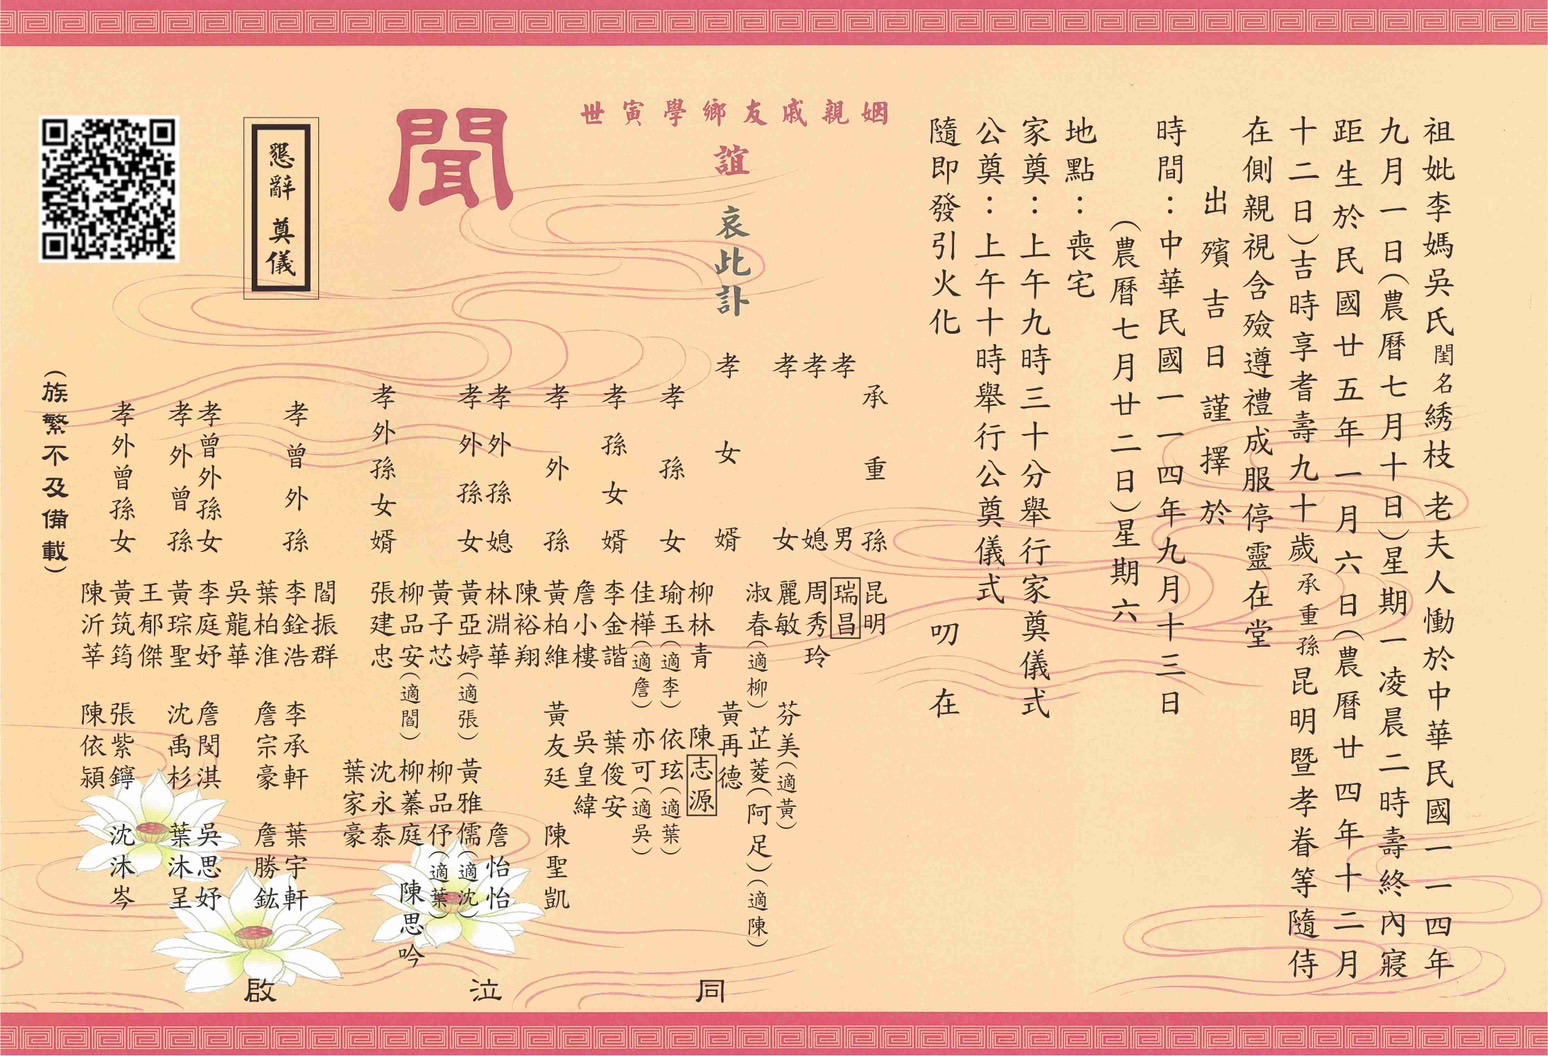 祖妣李媽吳氏閨名綉枝老夫人慟於中華民國一一四年
九月一日(農曆七月十日)星期一凌晨二時壽終內寢
距生於民國廿五年一月六日(農曆廿四年十二月
十二日)吉時享耆壽九十歲承重孫昆明暨孝眷等隨侍
在側親視含殮遵禮成服停靈在堂
出殯吉日謹擇於
時間:中華民國一一四年九月十三日
(農曆七月廿二日)星期六
地點:喪宅
家奠:上午九時三十分舉行家奠儀式
公奠:上午十時舉行公奠儀式
隨即發引火化 叨在
姻親戚友鄉學寅世
誼 哀此訃
聞
承重孫 昆明
孝男 瑞昌
孝媳 周秀玲
孝女 麗敏 芬美(適黃)
淑春(適柳) 芷菱(阿足)(適陳)
孝女婿 黃再德
柳林青 陳志源
孝孫女 瑜玉(適李) 依玹(適葉)
佳樺(適詹) 亦可(適吳)
孝孫女婿 李金諧 葉俊安
詹小樓 吳皇緯
孝外孫 黃柏維 黃友廷 陳聖凱
陳裕翔
孝外孫媳 林淵華 詹怡怡
孝外孫女 黃亞婷(適張) 黃雅儒(適沈)
黃子芯 柳品伃(適葉)
柳品安(適閻) 柳蓁庭 陳思吟
孝外孫女婿 張建忠 沈永泰
葉家豪
閻振群
孝曾外孫 李銓浩 李承軒 葉宇軒
葉柏淮 詹宗豪 詹勝鈜
吳龍華
孝曾外孫女 李庭妤 詹閔淇 吳思妤
孝外曾孫 黃琮聖 沈禹杉 葉沐呈
王郁傑
孝外曾孫女 黃筑筠 張紫鑏 沈沐岑
陳沂莘 陳依潁
(族繁不及備載)
同泣啟
懇辭 奠儀